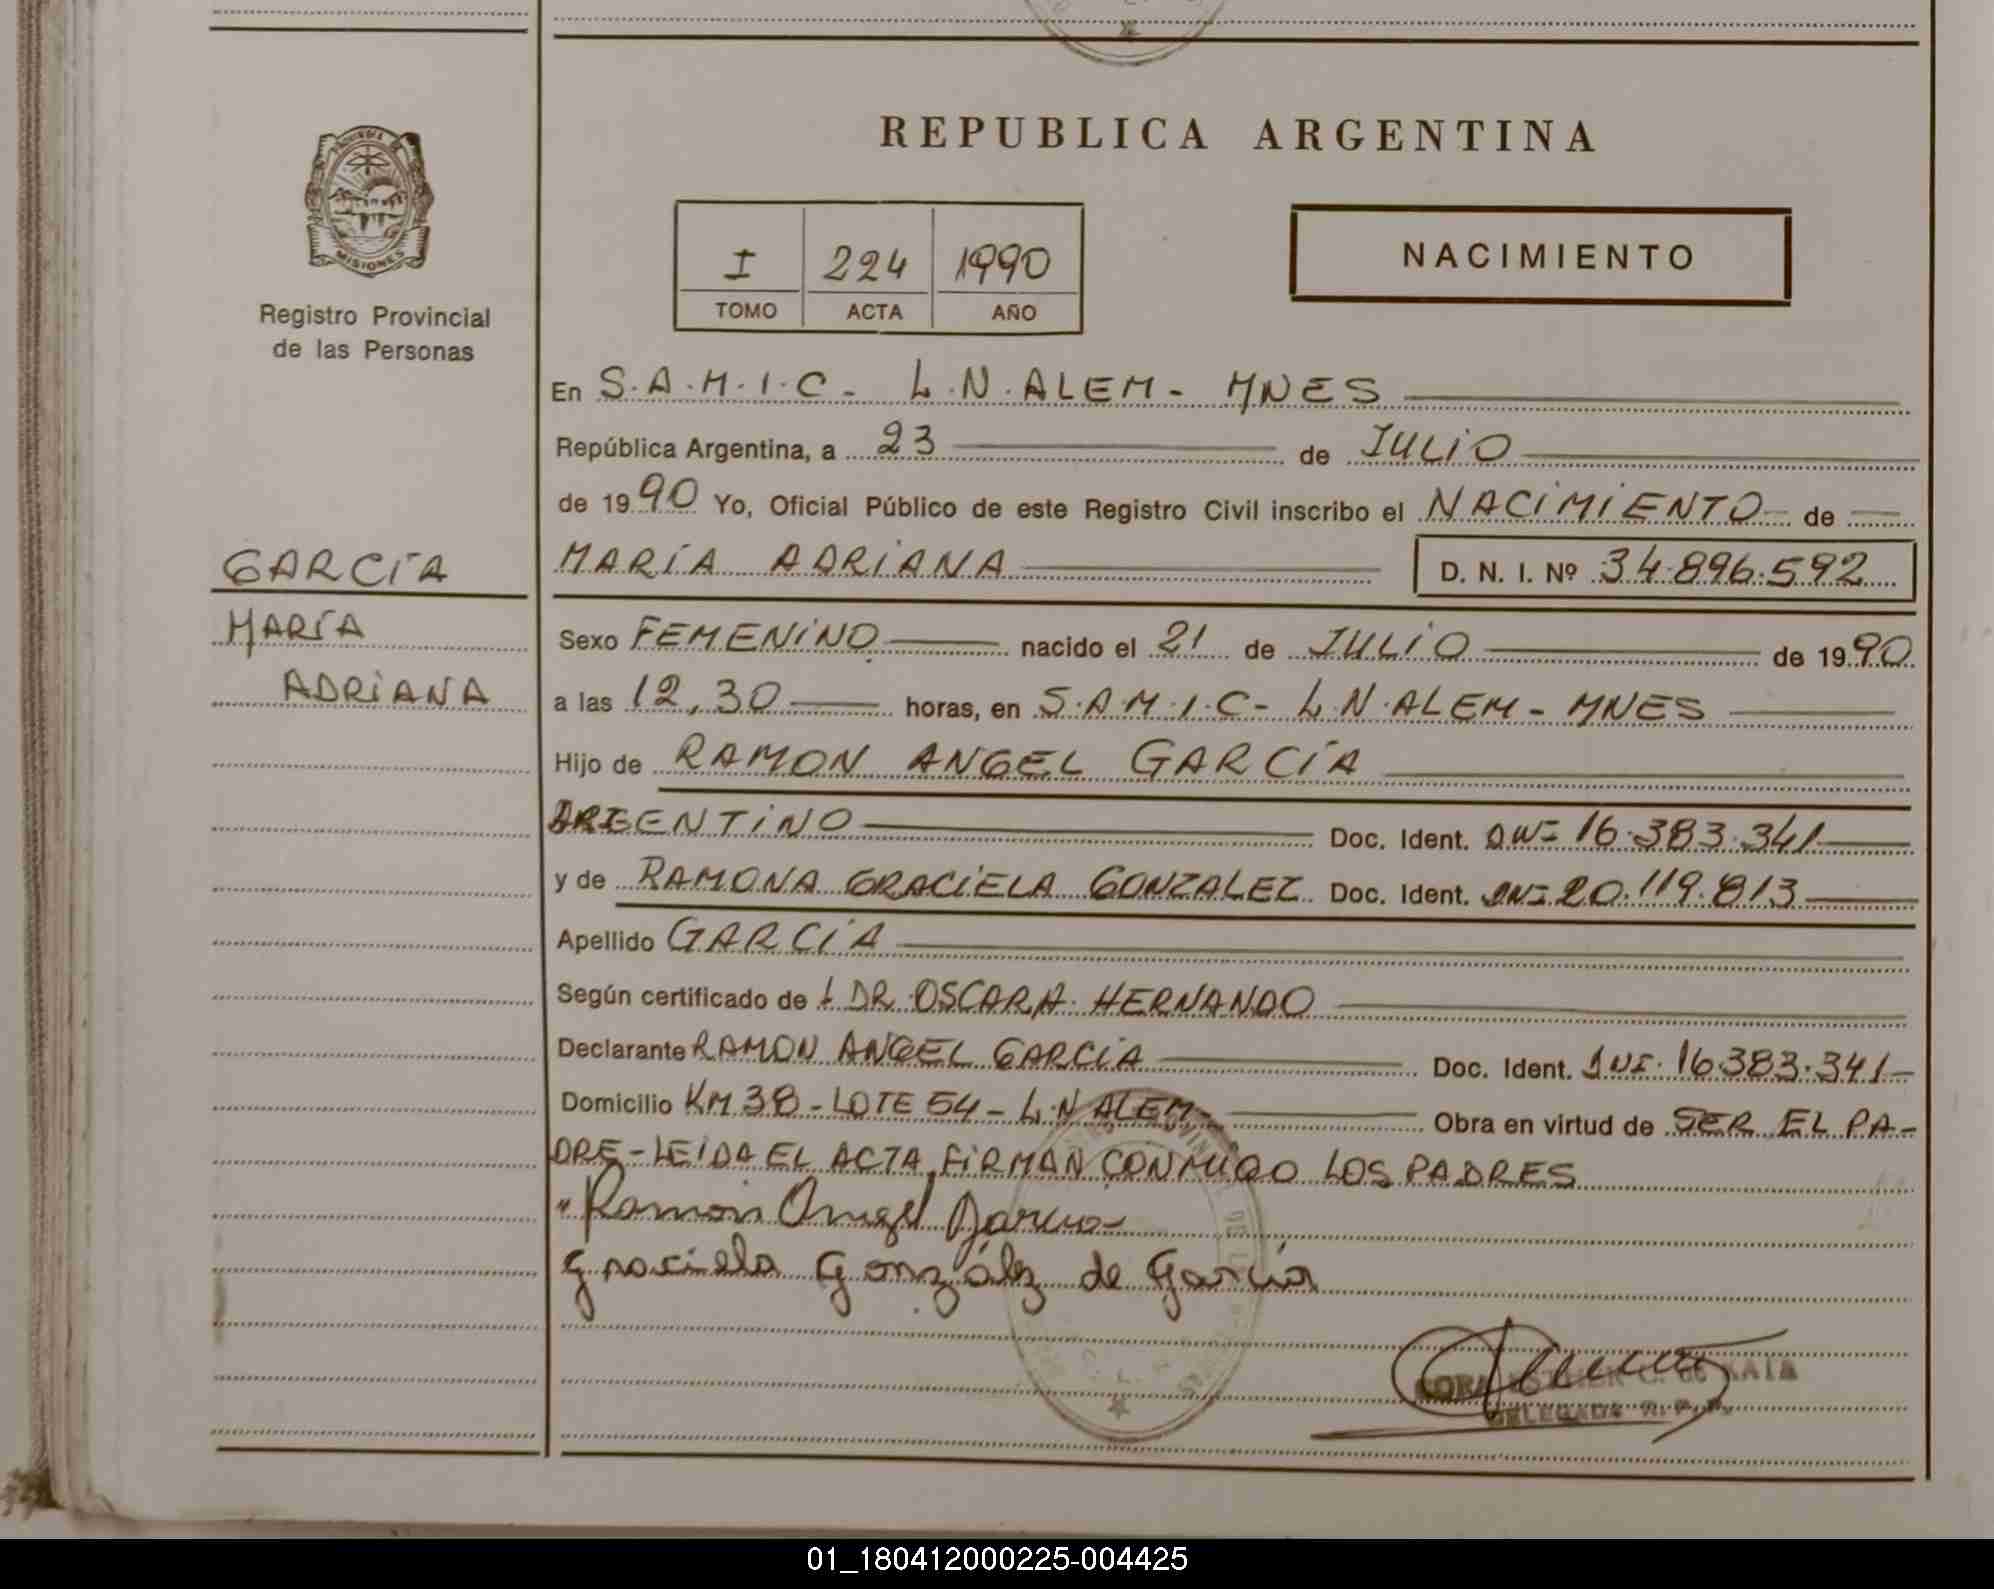 REPUBLICA ARGENTINA
PROVINCIA DE
MISIONES
Registro Provincial
de las Personas
I 224 1990
TOMO ACTA AÑO
NACIMIENTO
En S.A.M.I.C- L.N.ALEM- MNES
República Argentina, a 23 de JULIO
de 1990 Yo, Oficial Público de este Registro Civil inscribo el NACIMIENTO de
GARCÍA
MARÍA ADRIANA D. N. I. Nº 34.896.592
MARÍA
Sexo FEMENINO nacido el 21 de JULIO de 1990
ADRIANA
a las 12,30 horas, en S.A.M.I.C- L.N.ALEM- MNES
Hijo de RAMON ANGEL GARCÍA
ARGENTINO Doc. Ident. DNI 16.383.341
y de RAMONA GRACIELA GONZALEZ Doc. Ident. DNI 20.119.813
Apellido GARCÍA
Según certificado de DR. OSCAR A. HERNANDO
Declarante RAMON ANGEL GARCÍA Doc. Ident. DNI. 16.383.341
Domicilio KM 38 - LOTE 54 - L.N ALEM- Obra en virtud de SER EL PA-
DRE - LEIDA EL ACTA, FIRMAN CONMIGO LOS PADRES
Ramon Angel Garcia
Graciela González de García
ESTHER
DELEGADA R. P. P.
01_180412000225-004425